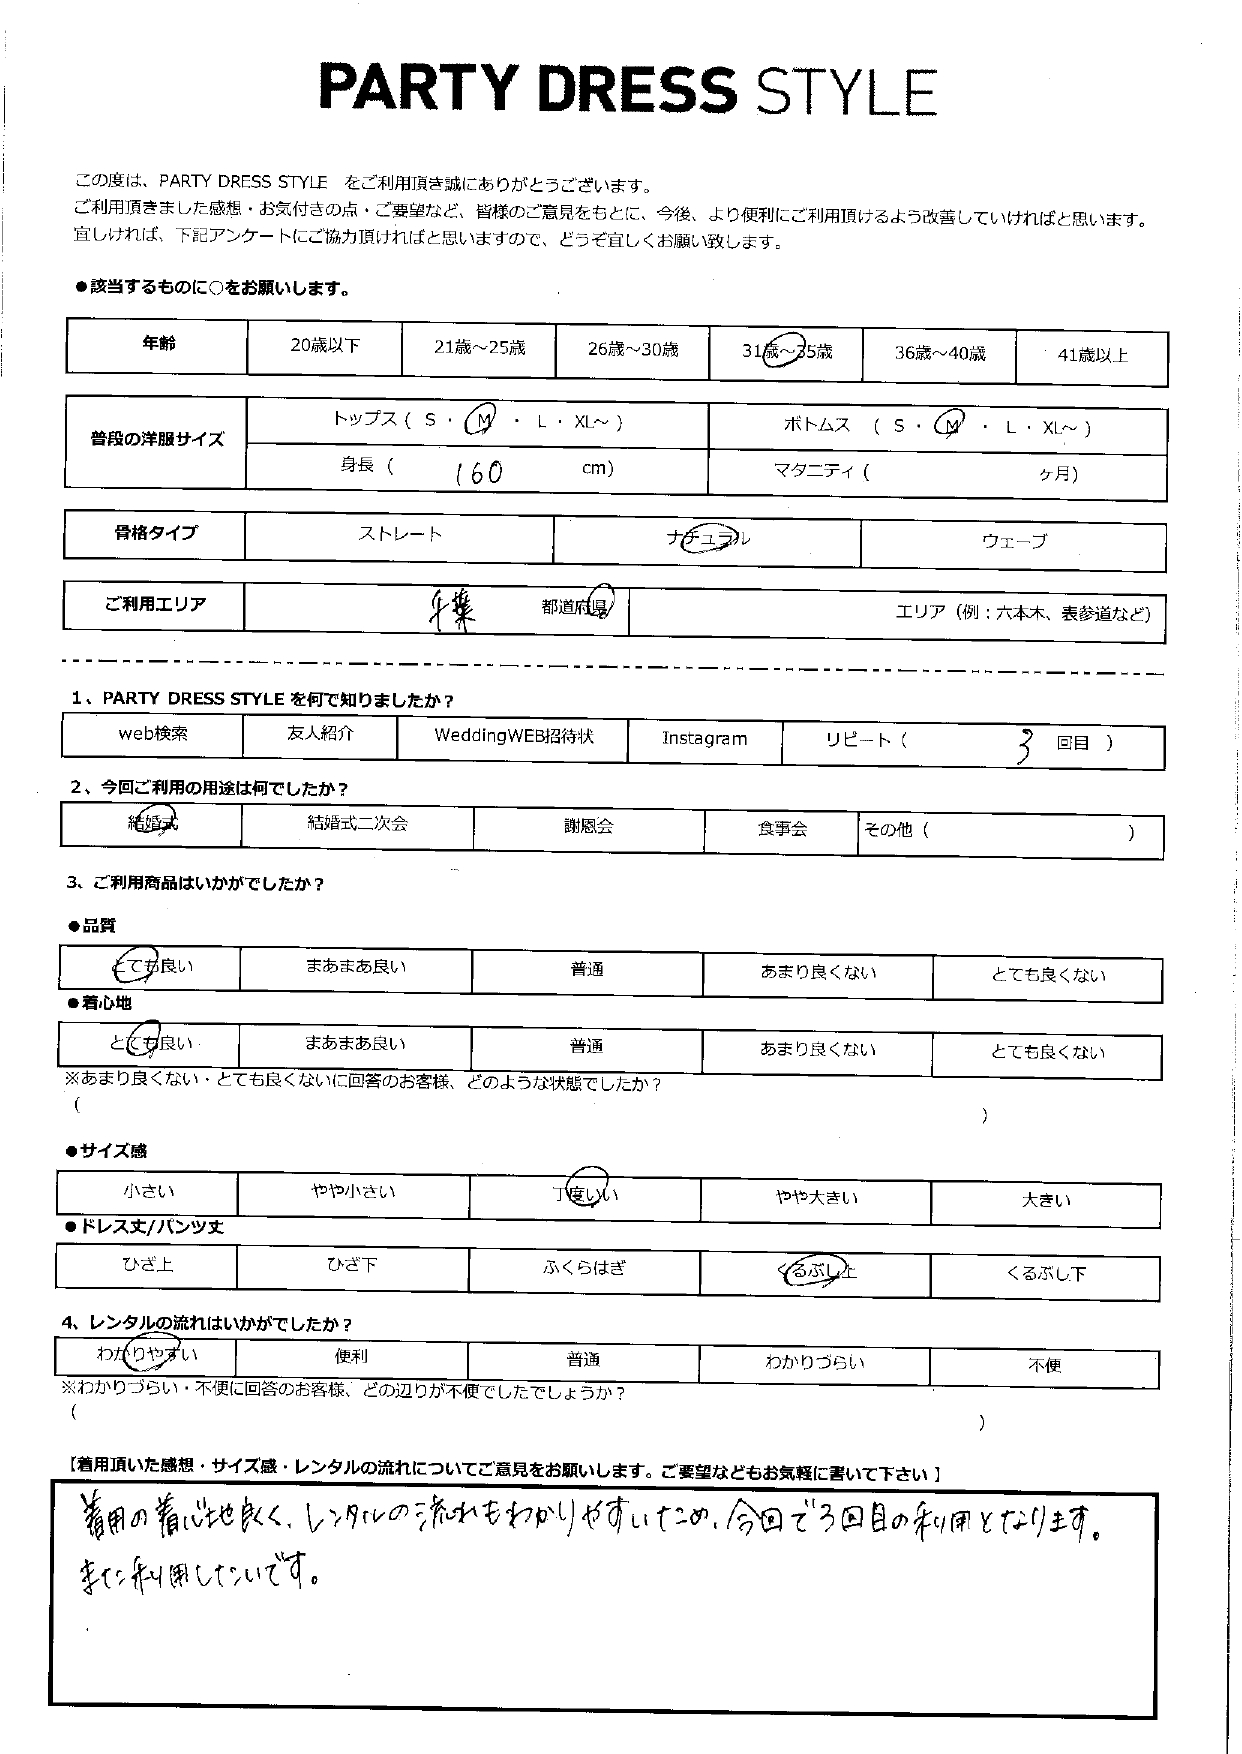 PARTY DRESS STYLE
この度は、PARTY DRESS STYLE をご利用頂き誠にありがとうございます。
ご利用頂きました感想・お気付きの点・ご要望など、皆様のご意見をもとに、今後、より便利にご利用頂けるよう改善していければと思います。
宜しければ、下記アンケートにご協力頂ければと思いますので、どうぞ宜しくお願い致します。
●該当するものに○をお願いします。
年齢 20歳以下 21歳～25歳 26歳～30歳 31歳～35歳 36歳～40歳 41歳以上
普段の洋服サイズ トップス ( S ・ M ・ L ・ XL～ ) ボトムス ( S ・ M ・ L ・ XL～ )
身長 ( 160 cm) マタニティ ( ヶ月)
骨格タイプ ストレート ナチュラル ウェーブ
ご利用エリア 千葉 都道府県 エリア（例：六本木、表参道など）
1、PARTY DRESS STYLE を何で知りましたか？
web検索 友人紹介 WeddingWEB招待状 Instagram リピート ( 3 回目 )
2、今回ご利用の用途は何でしたか？
結婚式 結婚式二次会 謝恩会 食事会 その他 ( )
3、ご利用商品はいかがでしたか？
●品質
とても良い まあまあ良い 普通 あまり良くない とても良くない
●着心地
とても良い まあまあ良い 普通 あまり良くない とても良くない
※あまり良くない・とても良くないに回答のお客様、どのような状態でしたか？
( )
●サイズ感
小さい やや小さい 丁度いい やや大きい 大きい
●ドレス丈/パンツ丈
ひざ上 ひざ下 ふくらはぎ くるぶし上 くるぶし下
4、レンタルの流れはいかがでしたか？
わかりやすい 便利 普通 わかりづらい 不便
※わかりづらい・不便に回答のお客様、どの辺りが不便でしたでしょうか？
( )
【着用頂いた感想・サイズ感・レンタルの流れについてご意見をお願いします。ご要望などもお気軽に書いて下さい】
着用の着心地良く、レンタルの流れもわかりやすいため、今回で3回目の利用となります。
また利用したいです。